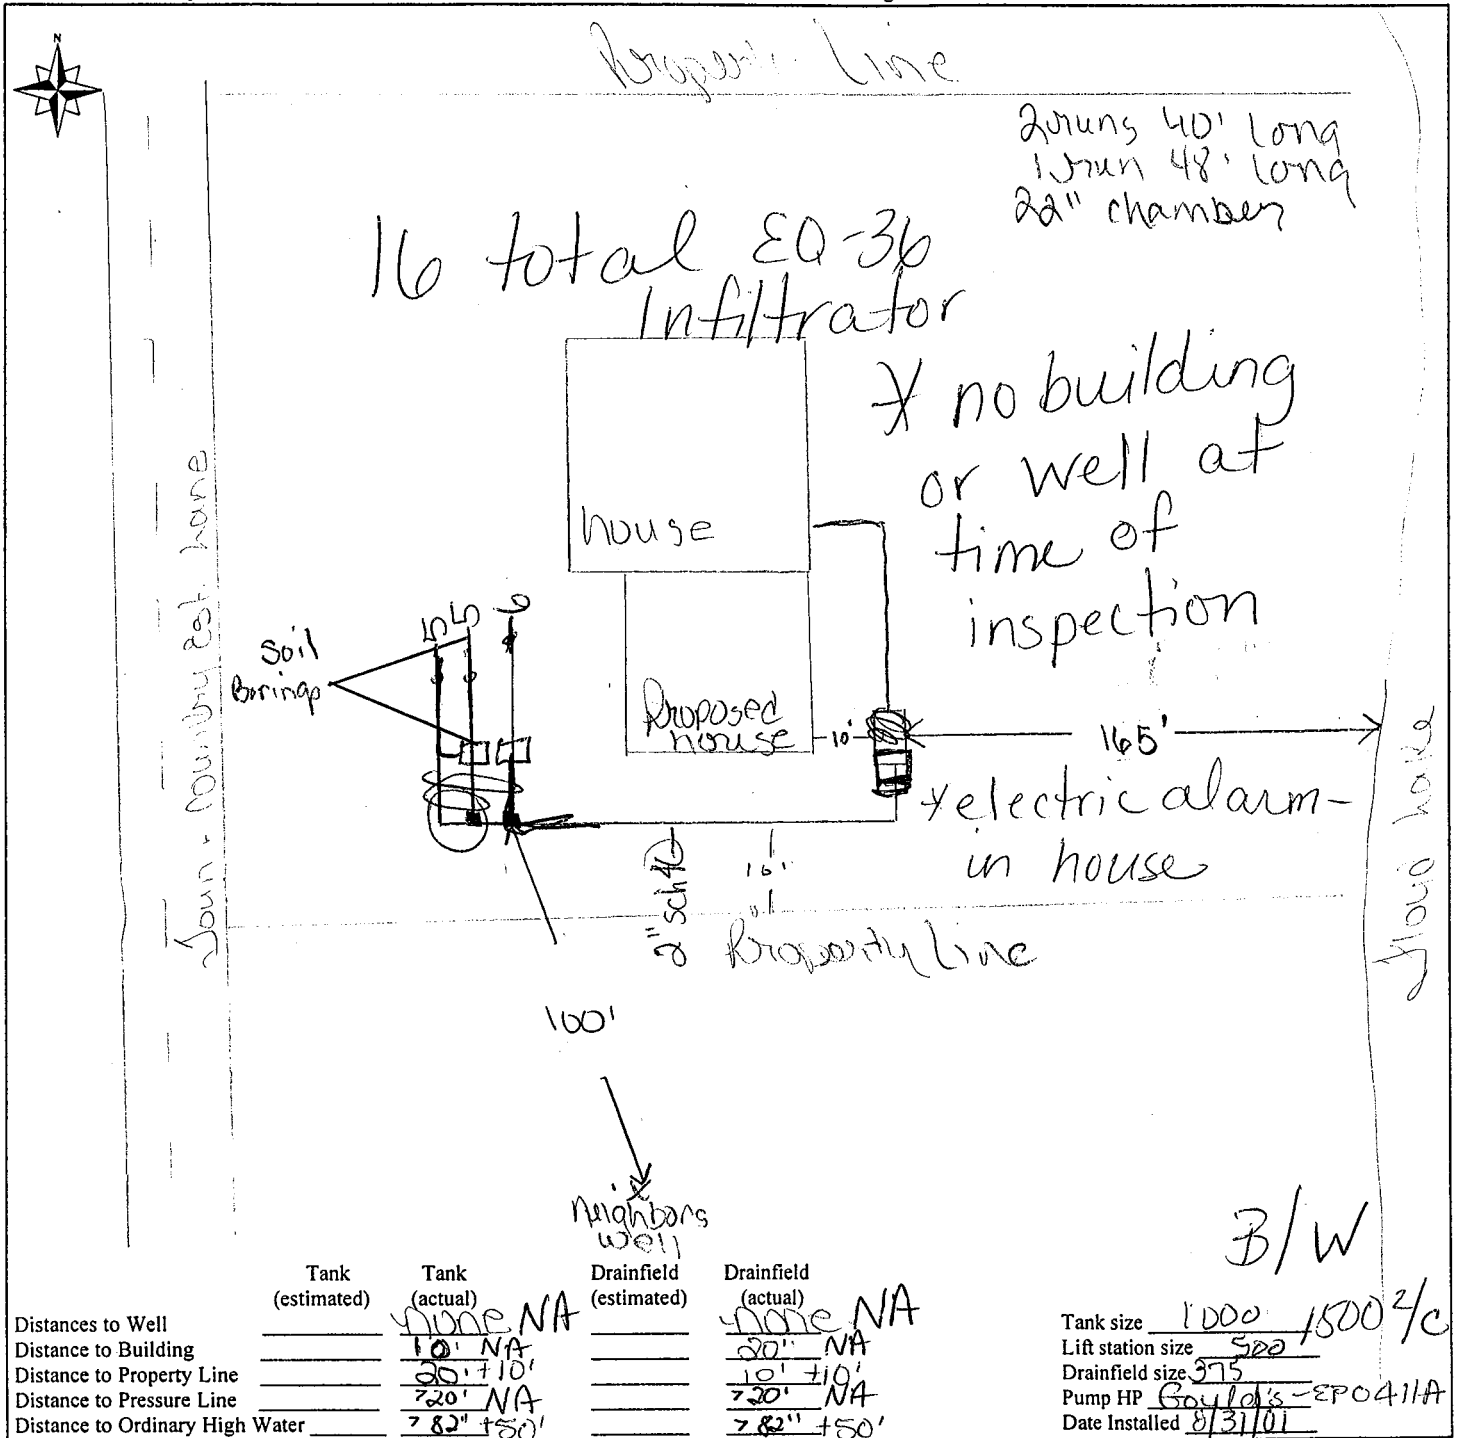 N
Property Line
2 runs 40' long
1 run 48' long
22" chamber
16 total EQ-36
Infiltrator
* no building
or well at
time of
inspection
house
Country Est. Lane
5 5 6
Soil
Borings
Proposed
house
10'
165'
* electric alarm-
in house
2" sch 40
10'
Property Line
Floyd Lake
100'
Neighbors
well
B/W
Tank Tank Drainfield Drainfield
(estimated) (actual) (estimated) (actual)
Distances to Well none NA none NA
Distance to Building 10' NA 20" NA
Distance to Property Line 20' +10' 10' +10'
Distance to Pressure Line >20' NA >20' NA
Distance to Ordinary High Water >82" +50' >82" +50'
Tank size 1000 1500 2/c
Lift station size 500
Drainfield size 375
Pump HP Goulds-EPO411A
Date Installed 8/31/01